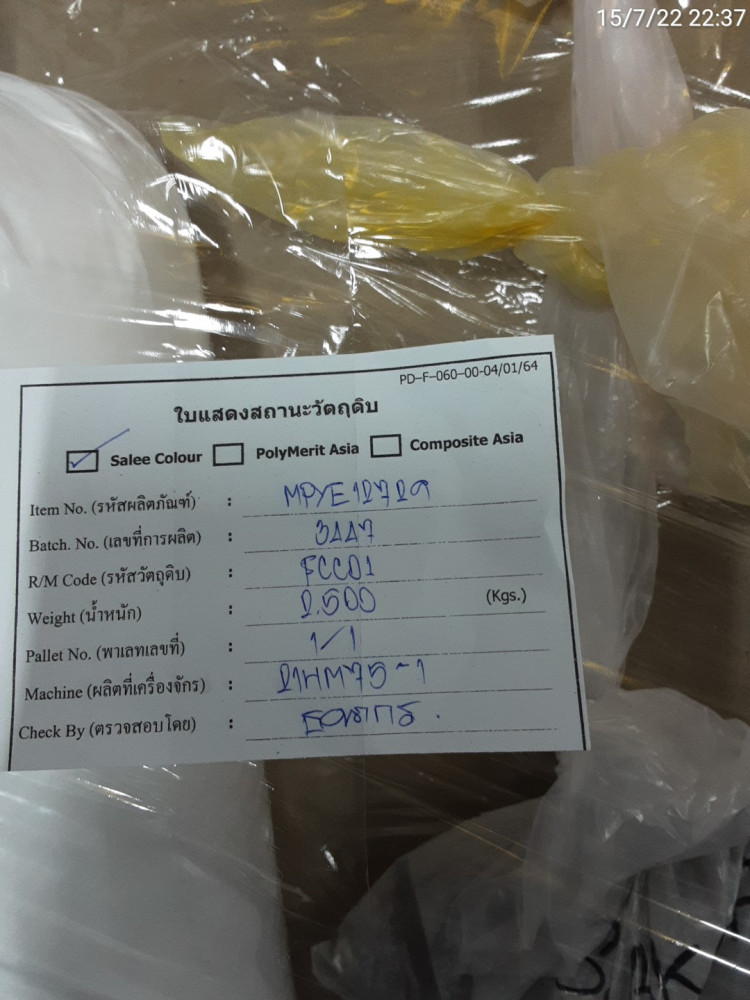 15/7/22 22:37
PD-F-060-00-04/01/64
ใบแสดงสถานะวัตถุดิบ
Salee Colour PolyMerit Asia Composite Asia
Item No. (รหัสผลิตภัณฑ์) : MPYE12729
Batch. No. (เลขที่การผลิต) : 3447
R/M Code (รหัสวัตถุดิบ) : FCC01
Weight (น้ำหนัก) : 2.500 (Kgs.)
Pallet No. (พาเลทเลขที่) : 1/1
Machine (ผลิตที่เครื่องจักร) : 21HM75-1
Check By (ตรวจสอบโดย) :